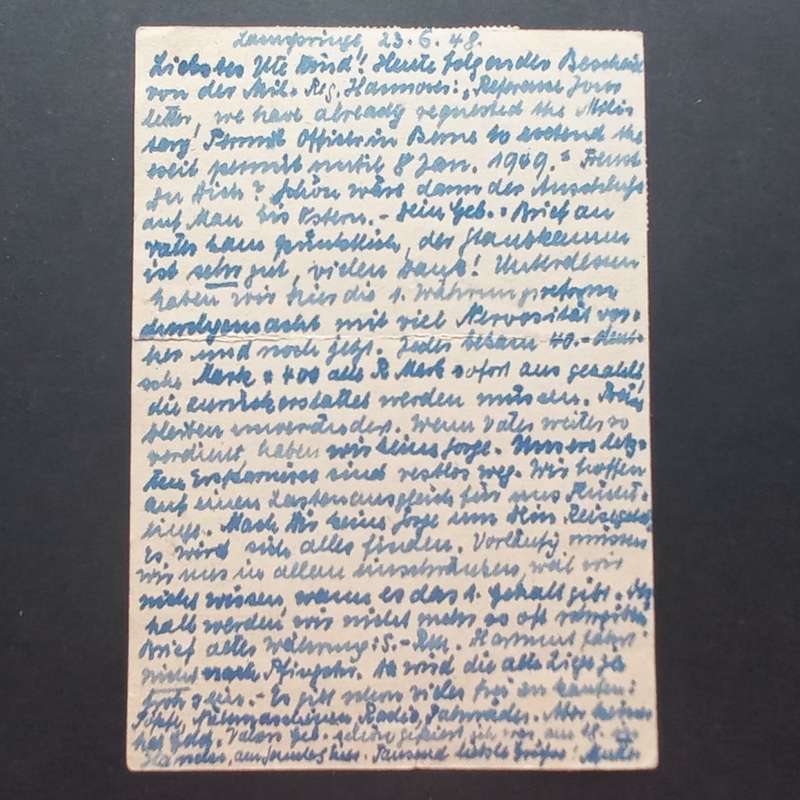 Lamspringe, 23.6.48.
Liebstes Ute Kind! Heute folgender Bescheid
von der Mil. Reg. Hannover: „Reference Your
letter, we have already requested the Mili-
tary Permit Officer in Berne to extend the
exit permit until 8 Jan. 1949." Freust
Du Dich? Schön wäre dann der Anschluss
auf Man bis Ostern. - Dein Geb.-Brief an
Vater kam pünktlich, der
ist sehr gut, vielen Dank! Unterdessen
haben wir hier die 1. Währungsreform
durchgemacht mit viel Nervosität vor-
her und noch jetzt. Jeder bekam 40.- deut-
sche Mark = 400 alte R Mark sofort ausgezahlt
die zurückerstattet werden müssen. Preise
bleiben unverändert. Wenn Vater weiter so
verdient haben wir keine Sorge. Unsere letz-
ten Ersparnisse sind restlos weg. Wir hoffen
auf einen Lastenausgleich für uns Flücht-
linge. Mach Dir keine Sorge um Dein Reisegeld,
es wird sich alles finden. Vorläufig müssen
wir uns in allem einschränken, weil wir
nicht wissen wann es das 1. Gehalt gibt. Des-
halb werden wir nicht mehr so oft schreiben
Brief alter Währung: 5.- RM. Hartmut fährt
nicht nach Pfingsten. Da wird die alte
froh sein. - Es gibt schon vieles frei zu kaufen:
Nähmaschinen, Radio, Fahrräder. Aber keiner
hat Geld. Vaters Geb. gefeiert, am 18.
hier. Tausend liebste Grüsse! Mutter